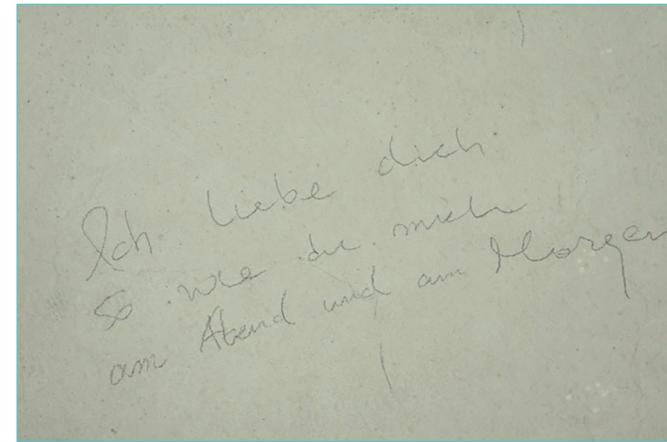 Ich liebe dich
so wie du mich
am Abend und am Morgen